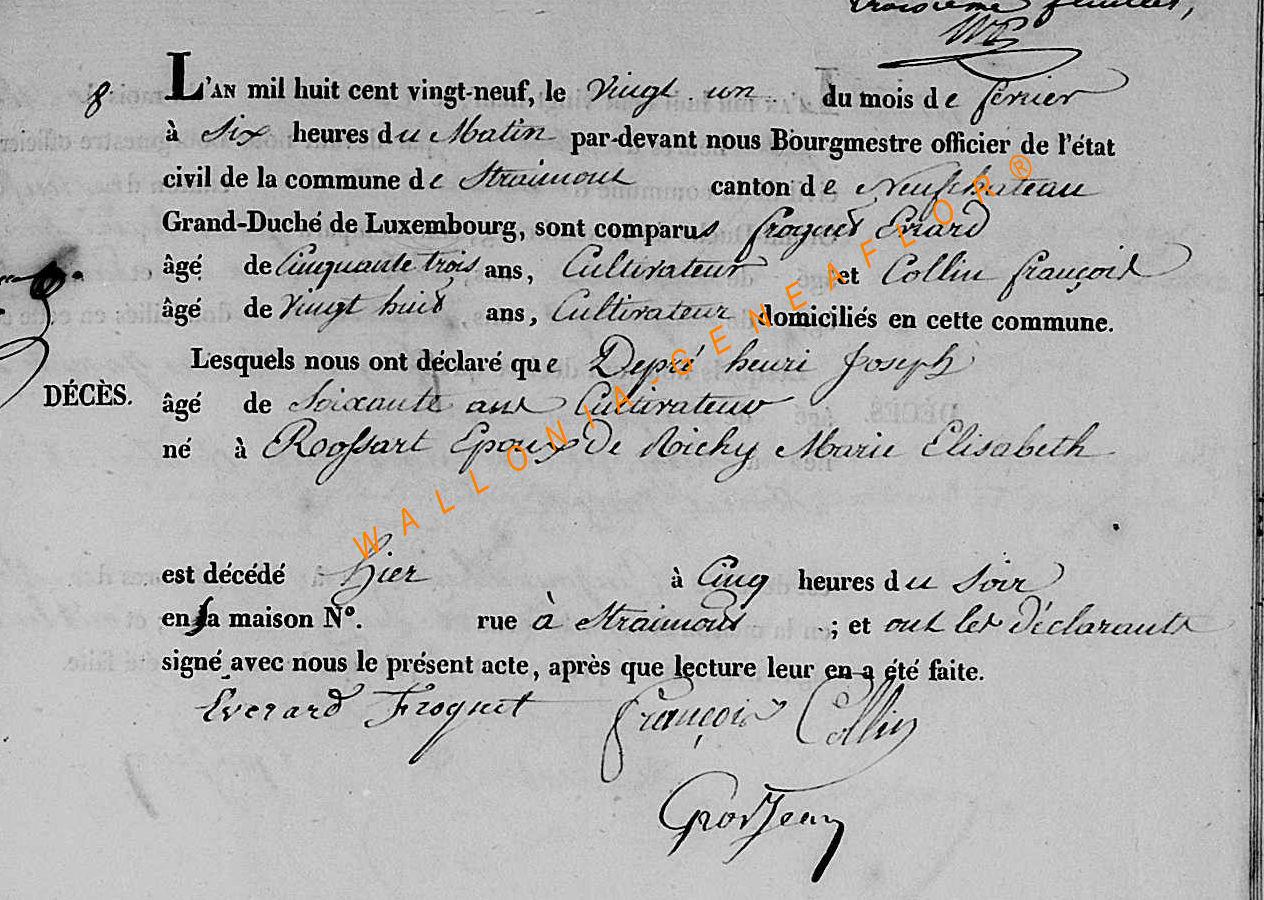 troisième feuillet,
8
L'AN mil huit cent vingt-neuf, le vingt un du mois de fevrier
à Six heures du Matin par-devant nous Bourgmestre officier de l'état
civil de la commune de Straimont canton de Neufchateau
Grand-Duché de Luxembourg, sont comparus froguet Evrard
âgé de Cinquante trois ans, Cultivateur et Collin françois
âgé de vingt huit ans, Cultivateur domiciliés en cette commune.
Lesquels nous ont déclaré que Depré henri Joseph
DÉCÈS.
âgé de Soixante ans Cultivateur
né à Rossart Epoux De Richy Marie Elisabeth
est décédé hier à Cinq heures du Soir
en sa maison N°. rue à Straimont ; et ont les déclarants
signé avec nous le présent acte, après que lecture leur en a été faite.
Everard Froguet françois Collin
WALLONIA.GENEAFLOR®